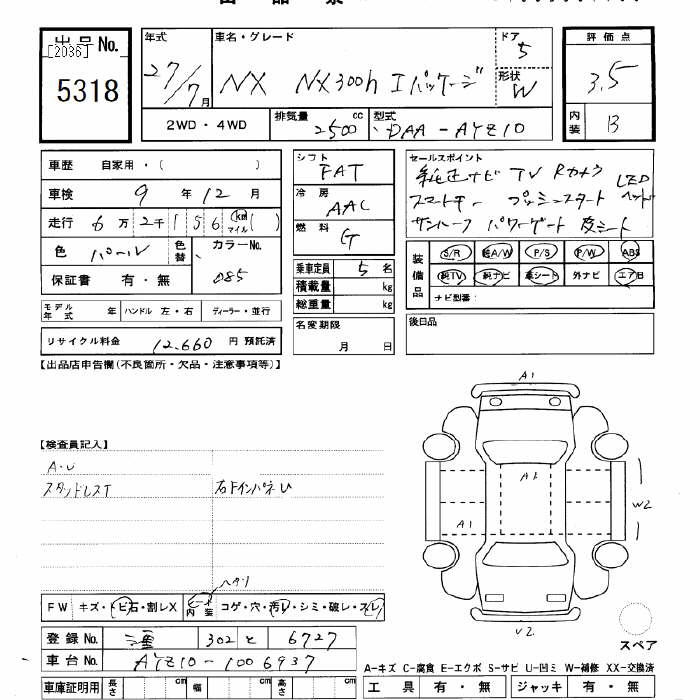 出品No.
[2036]
5318
年式
27/7月
車名・グレード
NX NX300h Iパッケージ
ドア
5
形状
W
評価点
3.5
内装
B
2WD・4WD
排気量 cc
2500
型式
DAA-AYZ10
車歴 自家用・( )
車検 9年12月
走行 6万2千156 (km マイル)( )
色 パール
色替
カラーNo.
085
保証書 有・無
シフト
FAT
冷房
AAC
燃料
G
乗車定員 5名
積載量 kg
総重量 kg
名変期限
月 日
セールスポイント
純正ナビ TV Rカメラ LED
スマートキー プッシュスタート ヘッド
サンルーフ パワーゲート 皮シート
装備品
S/R 純A/W P/S P/W ABS
純TV 純ナビ 革シート 外ナビ エアB
ナビ型番:
後日品
モデル年式 年
ハンドル 左・右
ディーラー・並行
リサイクル料金 12,660 円 預託済
【出品店申告欄(不良箇所・欠品・注意事項等)】
【検査員記入】
A・U
スタッドレスT
右下インパネU
A1
A1
A1
W2
U2
スペア
FW キズ・トビ石・割レX
内装 コゲ・穴・汚レ・シミ・破レ・スレ
登録No. 302 と 6727
車台No. AYZ10-1006937
車庫証明用 長さ cm 幅 cm 高さ cm
A-キズ C-腐食 E-エクボ S-サビ U-凹ミ W-補修 XX-交換済
工具 有・無
ジャッキ 有・無